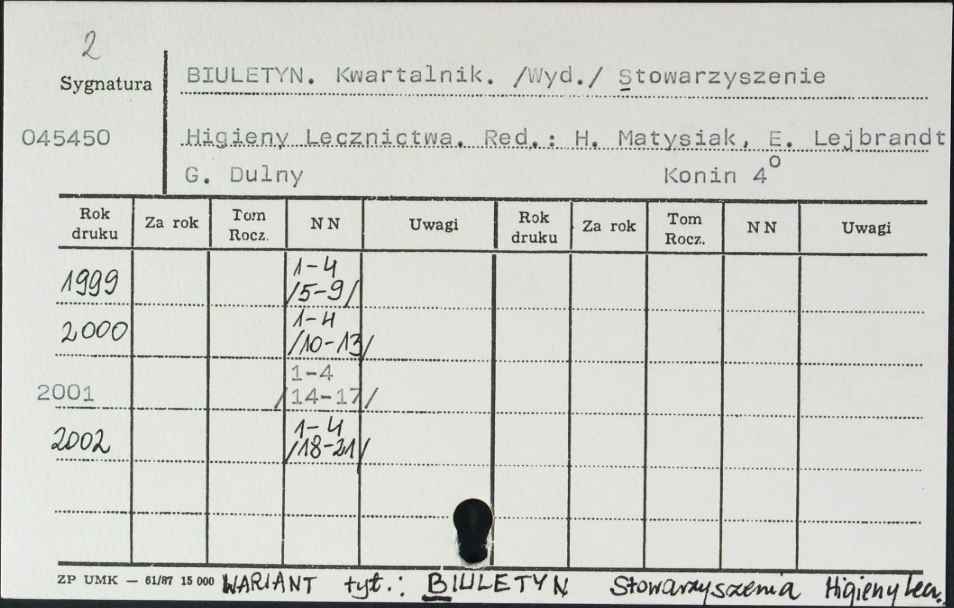 2
Sygnatura
BIULETYN. Kwartalnik. /Wyd./ Stowarzyszenie
045450
Higieny Lecznictwa. Red.: H. Matysiak, E. Lejbrandt
G. Dulny Konin 4°
Rok druku Za rok Tom Rocz. NN Uwagi Rok druku Za rok Tom Rocz. NN Uwagi
1999 1-4 /5-9/
2000 1-4 /10-13/
2001 1-4 /14-17/
2002 1-4 /18-21/
ZP UMK — 61/87 15 000 WARIANT tyt.: BIULETYN Stowarzyszenia Higieny Lecz.